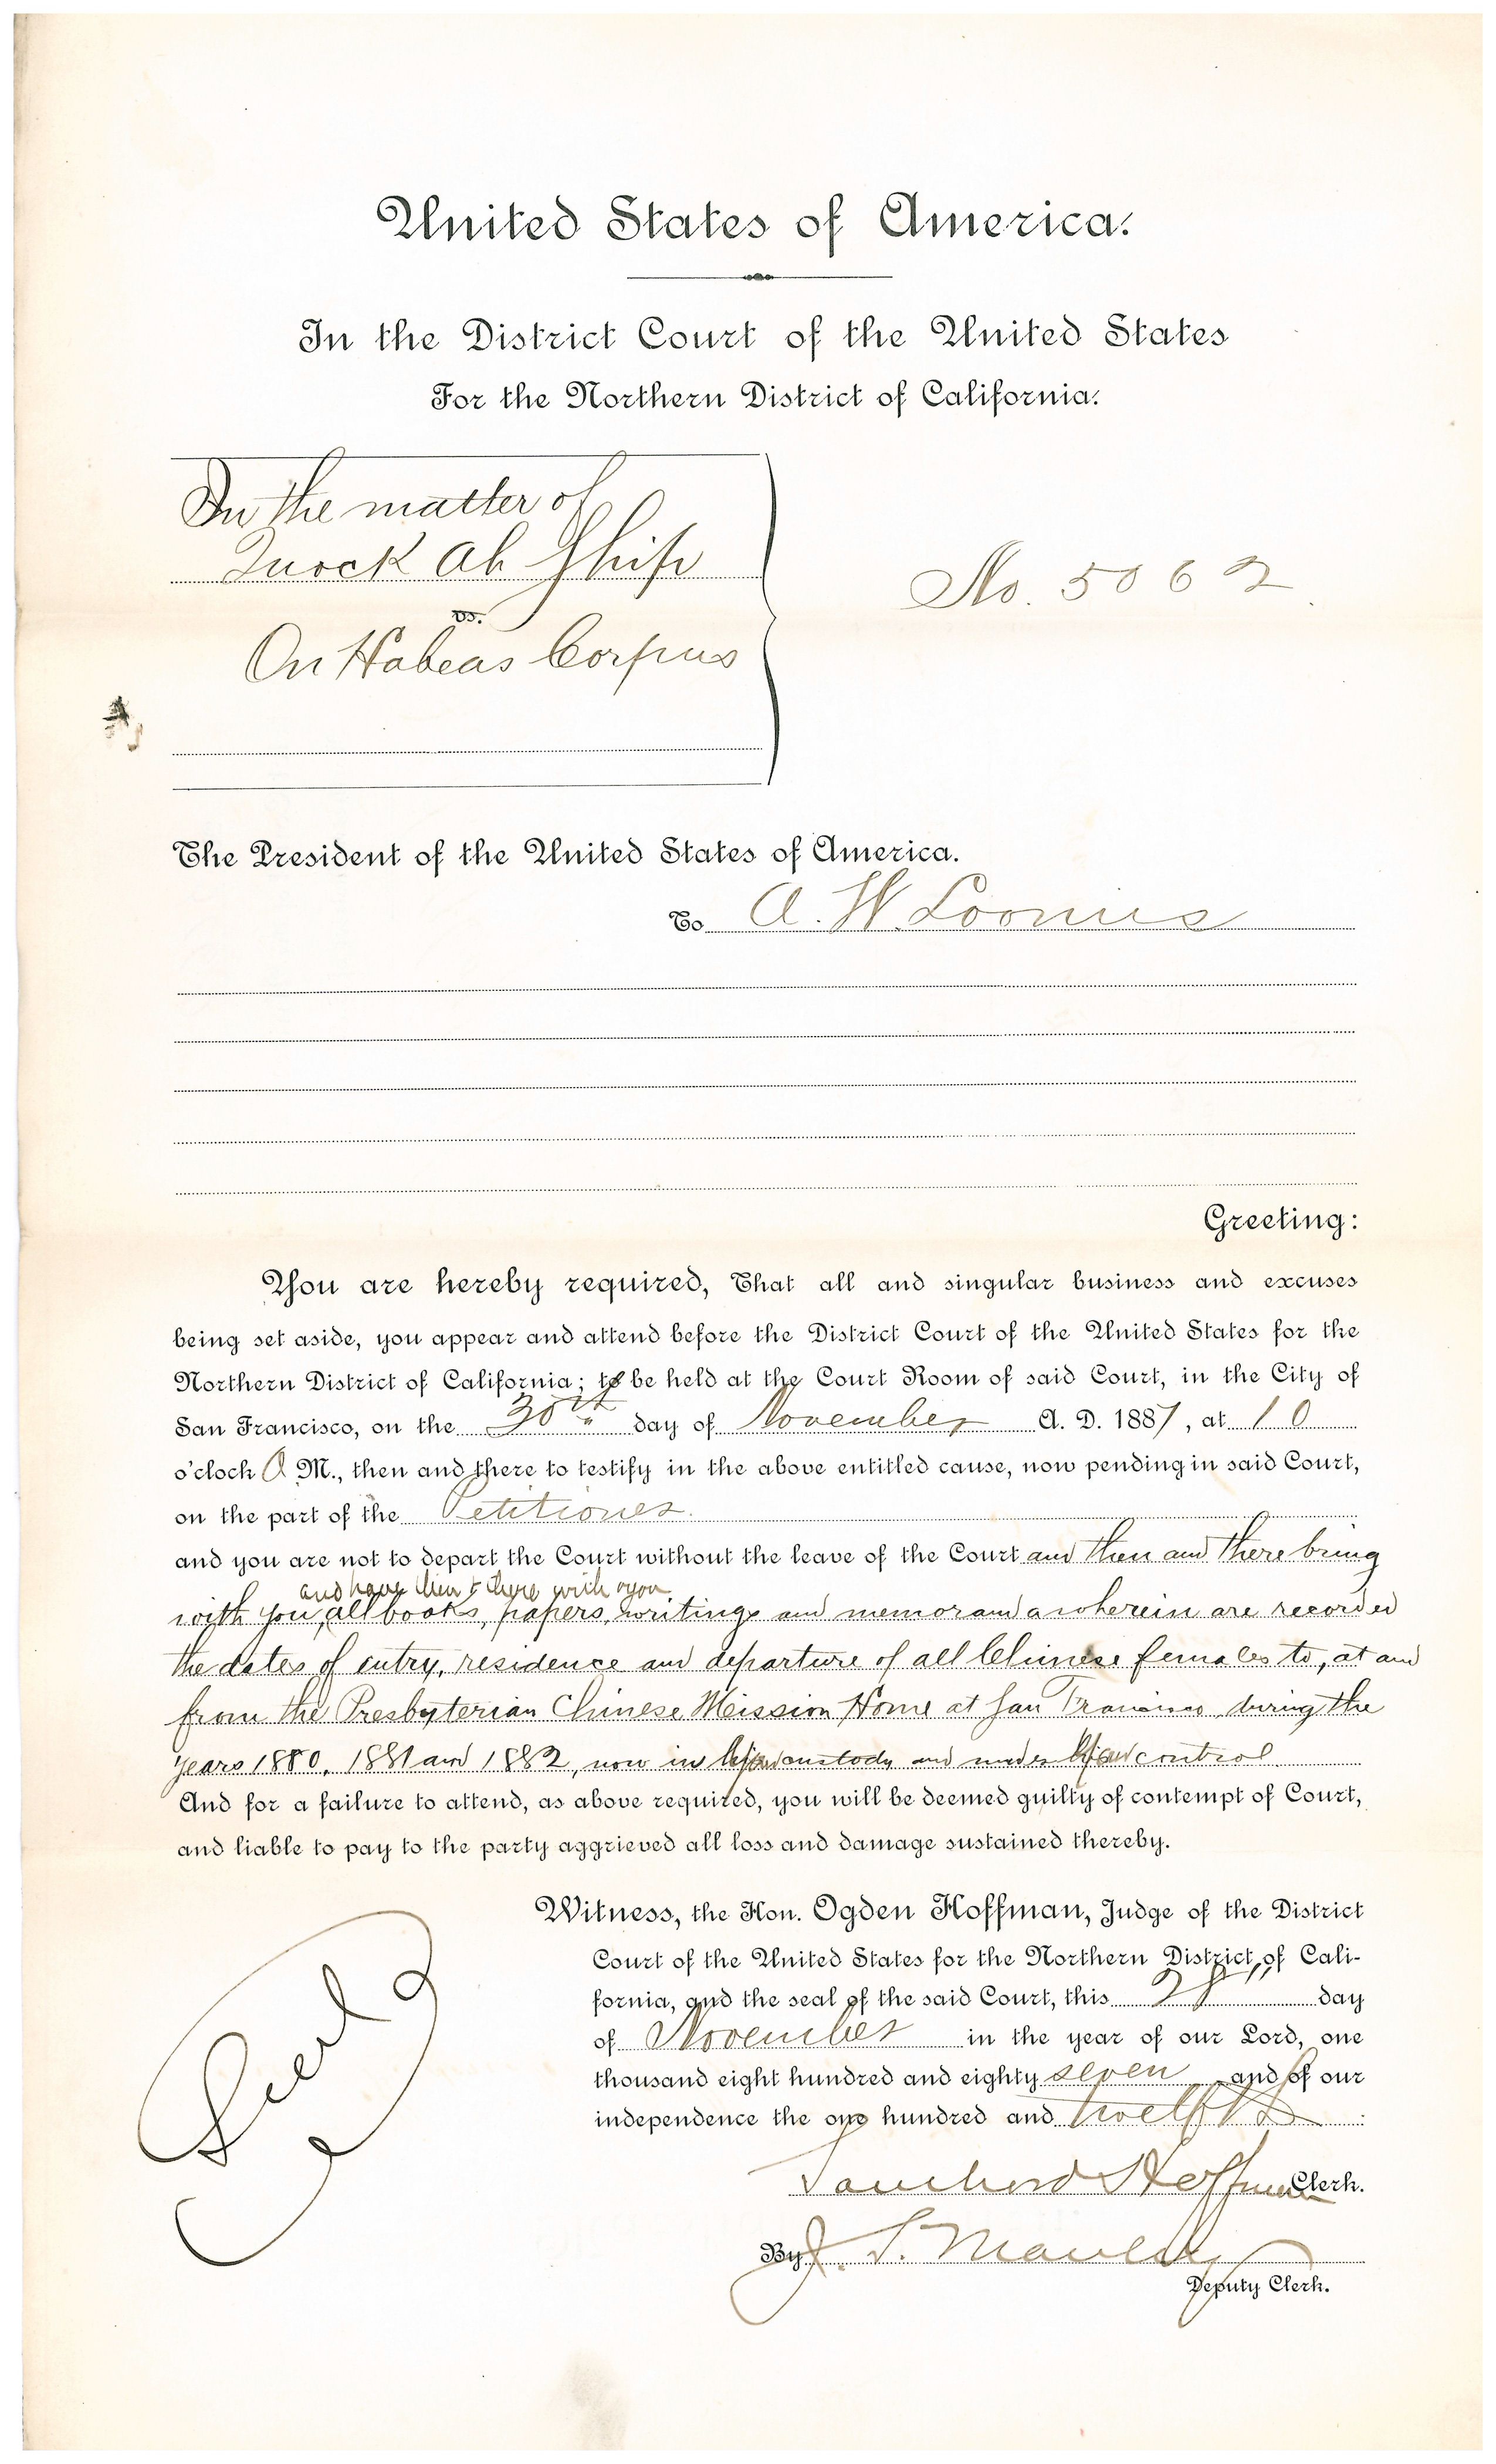 United States of America.
In the District Court of the United States
For the Northern District of California.
In the matter of
Quock Ah Ship
vs.
On Habeas Corpus
No. 5062
The President of the United States of America.
To A. W. Loomis
Greeting:
You are hereby required, That all and singular business and excuses
being set aside, you appear and attend before the District Court of the United States for the
Northern District of California; to be held at the Court Room of said Court, in the City of
San Francisco, on the 30th day of November A. D. 1887, at 10
o'clock A M., then and there to testify in the above entitled cause, now pending in said Court,
on the part of the Petitioner.
and you are not to depart the Court without the leave of the Court and then and there bring
and have then & there with you
with you, all books, papers, writings and memoranda wherein are recorded
the dates of entry, residence and departure of all Chinese females to, at and
from the Presbyterian Chinese Mission Home at San Francisco during the
years 1880, 1881 and 1882, now in your custody and under your control
And for a failure to attend, as above required, you will be deemed guilty of contempt of Court,
and liable to pay to the party aggrieved all loss and damage sustained thereby.
Witness, the Hon. Ogden Hoffman, Judge of the District
Court of the United States for the Northern District of Cali-
fornia, and the seal of the said Court, this 28" day
of November in the year of our Lord, one
thousand eight hundred and eighty seven and of our
independence the one hundred and twelfth
Southard Hoffman Clerk.
By J. S. Manley
Deputy Clerk.
Seal